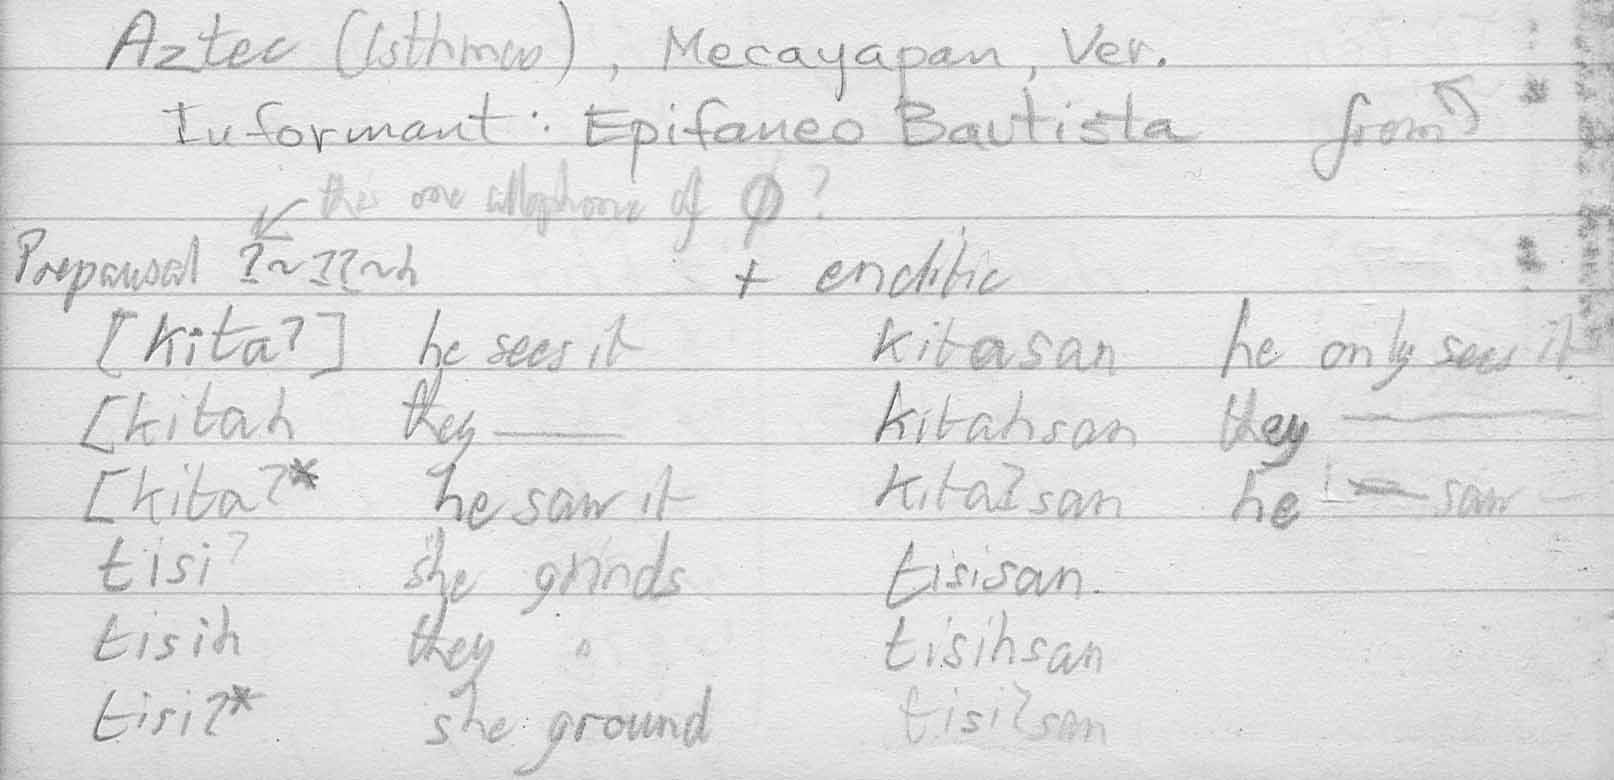 Aztec (Isthmus), Mecayapan, Ver.
Informant: Epifaneo Bautista from
this one allophone of Ø?
Prepausal ʔ~ʔ~h + enclitic
[kitaʔ] he sees it kitasan he only sees it
[kitah they —— kitahsan they ——
[kitaʔ* he saw it kitaʔsan he — saw —
tisiʔ she grinds tisisan.
tisih they " tisihsan
tisiʔ* she ground tisiʔsan